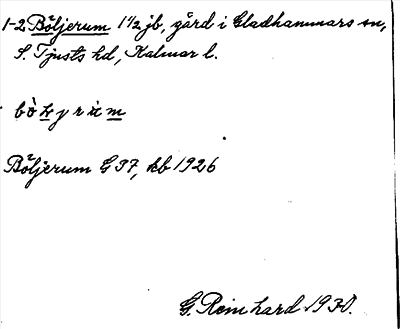 1-2 Böljerum 1 1/2 jb, gård i Gladhammars sn,
S. Tjusts hd, Kalmar l.
Böljerum G 37, kb 1926
G. Reinhard 1930.